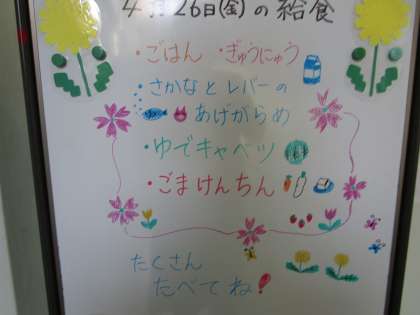 4月26日(金)の給食
・ごはん ・ぎゅうにゅう
・さかなとレバーの
あげがらめ
・ゆでキャベツ
・ごまけんちん
たくさん
たべてね!